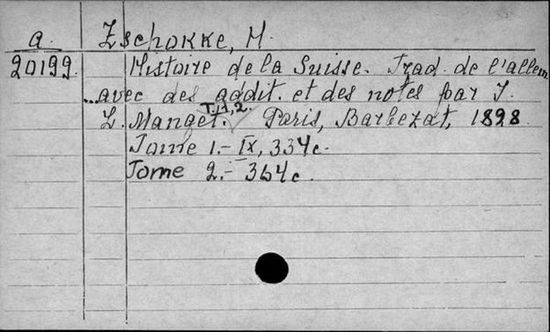 a. Zschokke, H.
20199. Histoire de la Suisse. Trad. de l'allem.
...avec des addit. et des notes par J.
L. Manget. T. 1, 2. Paris, Barbezat, 1828.
Tome 1.- IX, 334c.
Tome 2.- 354c.